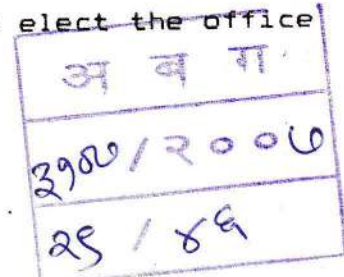 elect the office
अ ब ग
/ २००७
२९ / ४६